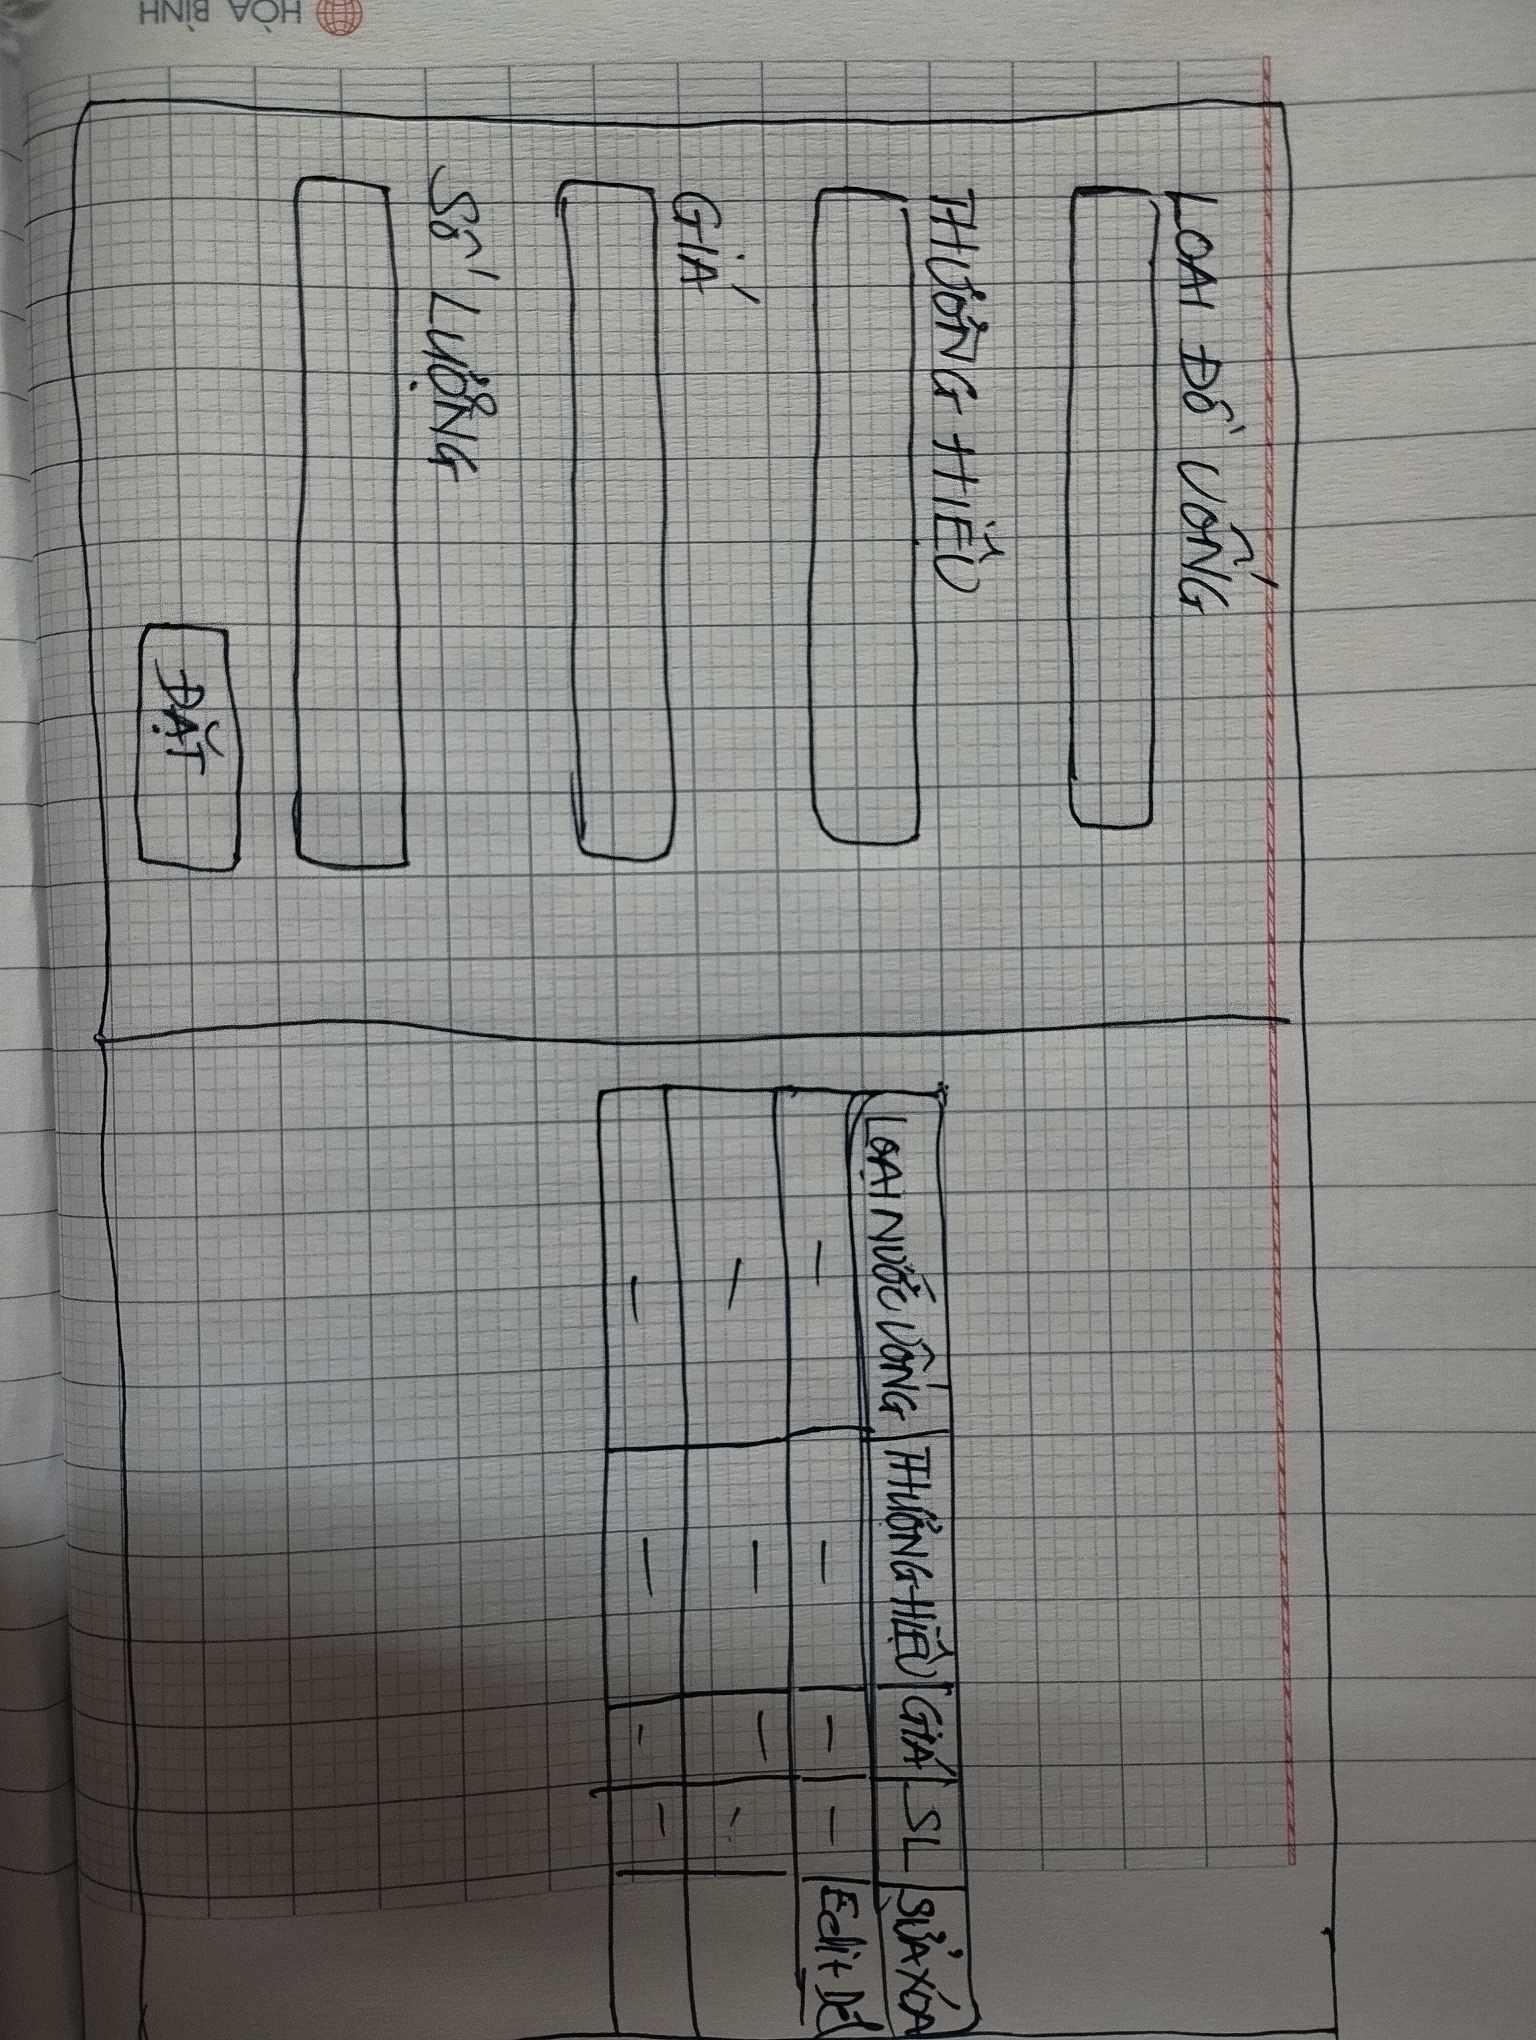 LOẠI ĐỒ UỐNG
THƯƠNG HIỆU
GIÁ
SỐ LƯỢNG
ĐẶT
LOẠI NƯỚC UỐNG THƯƠNG HIỆU GIÁ SL SỬA XÓA
Edit Del
HÒA BÌNH